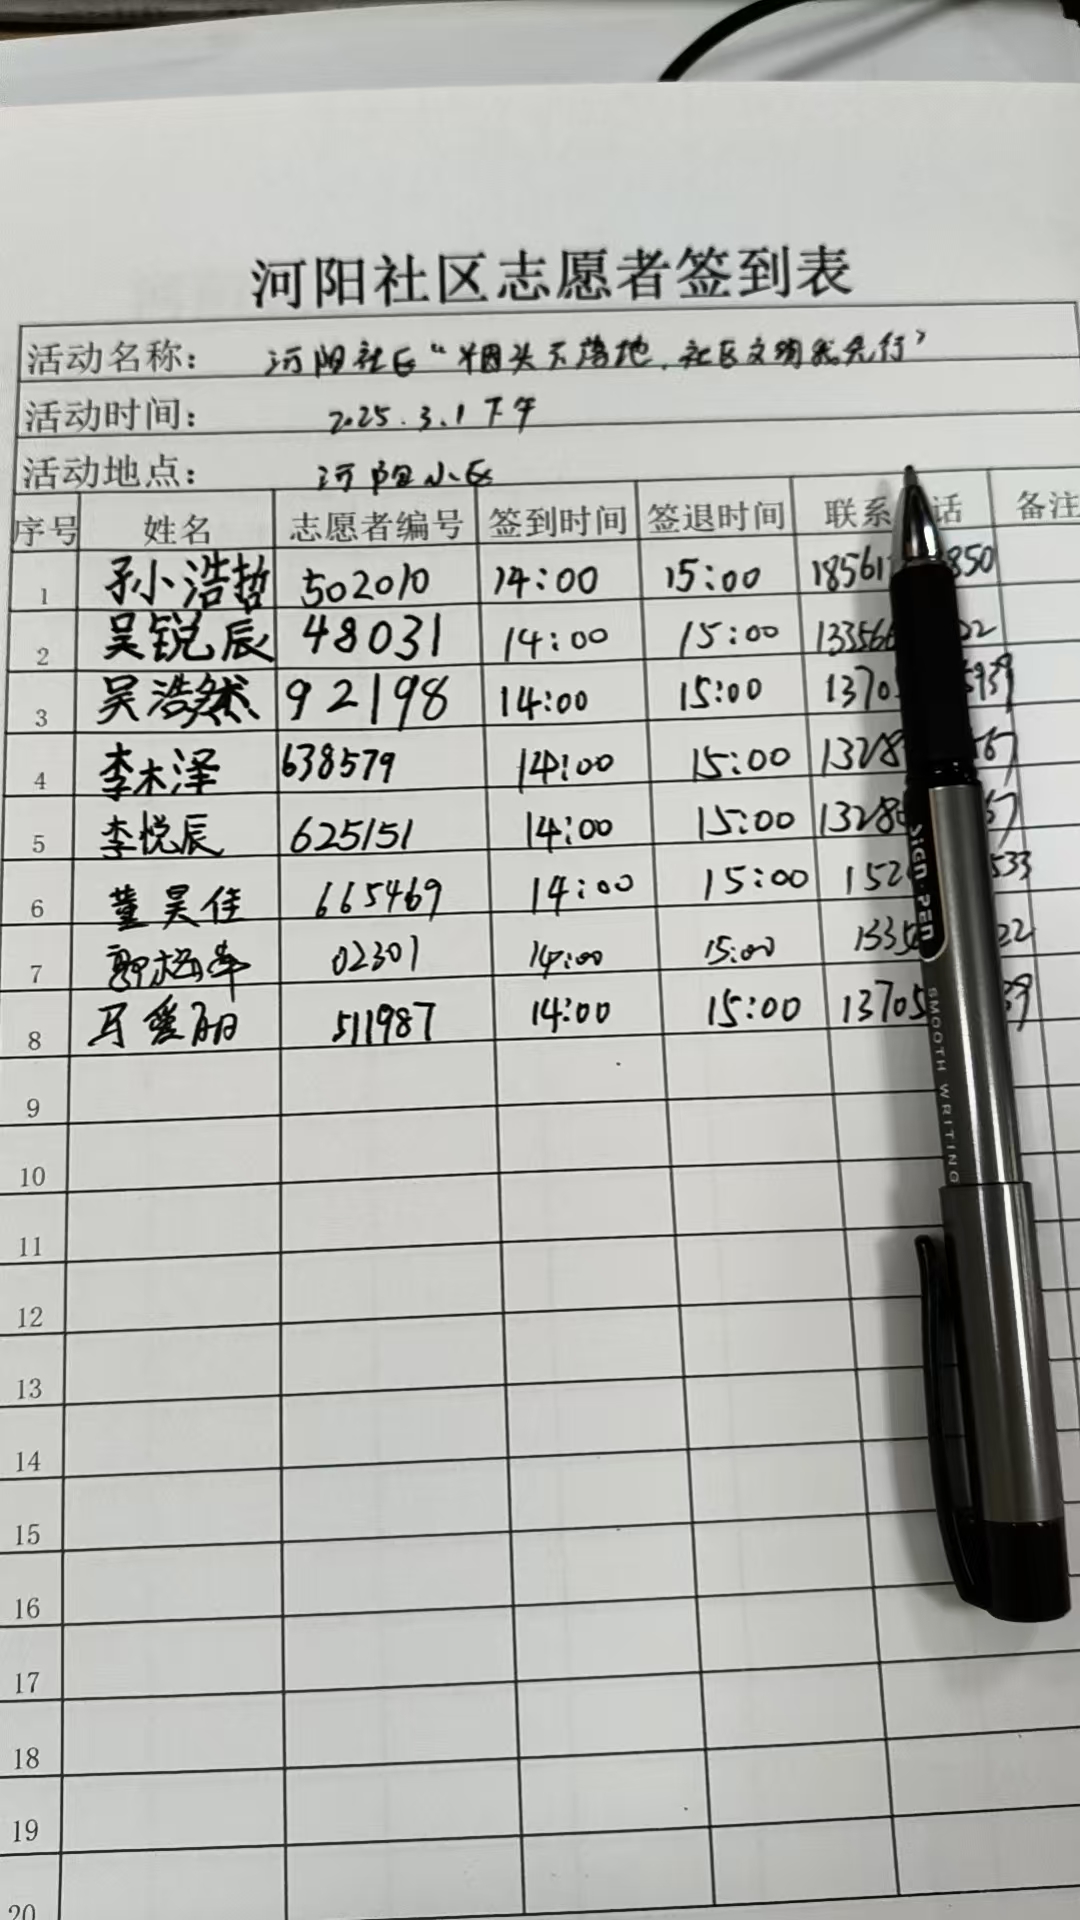 河阳社区志愿者签到表
活动名称： 河阳社区“烟头不落地，社区文明我先行”
活动时间： 2025.3.1下午
活动地点： 河阳小区
序号 姓名 志愿者编号 签到时间 签退时间 联系 话 备注
1 孙浩哲 502010 14:00 15:00 18561 850
2 吴锐辰 48031 14:00 15:00 13356 22
3 吴浩然 92198 14:00 15:00 1370 5939
4 李木泽 638579 14:00 15:00 1328 567
5 李悦辰 625151 14:00 15:00 1328 67
6 董昊佳 665469 14:00 15:00 152 533
7 02301 14:00 15:00 133 22
8 马爱丽 511987 14:00 15:00 13705 39
9
10
11
12
13
14
15
16
17
18
19
20
SIGN·PEN
SMOOTH WRITING